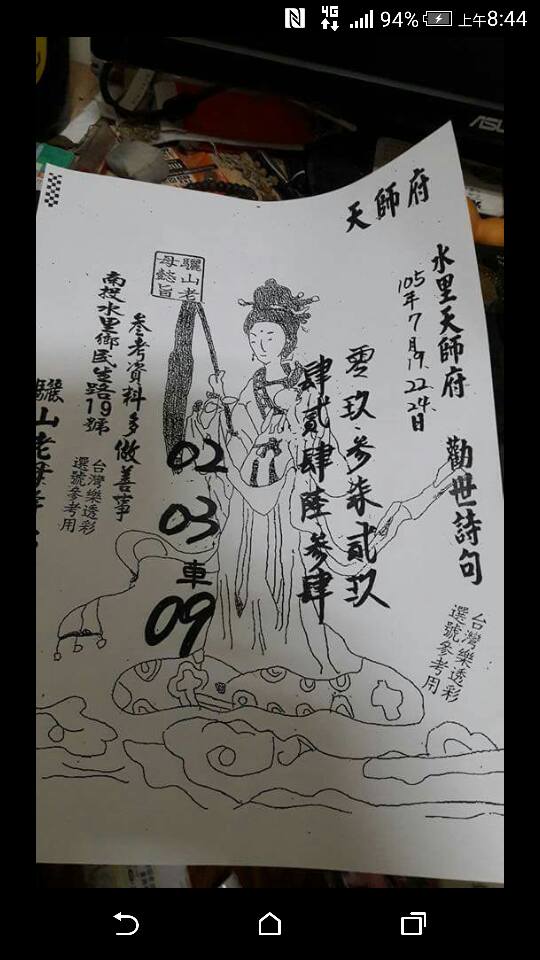 4G 94% 上午8:44
ASU
天師府
水里天師府 勸世詩句
105年7月19.22.24.日
零玖.參柒貳玖
肆貳肆陸參肆
台灣樂透彩
選號參考用
驪山老
母懿旨
02
03
車
09
參考資料多做善事
南投水里鄉民生路19號
台灣樂透彩
選號參考用
驪山老母